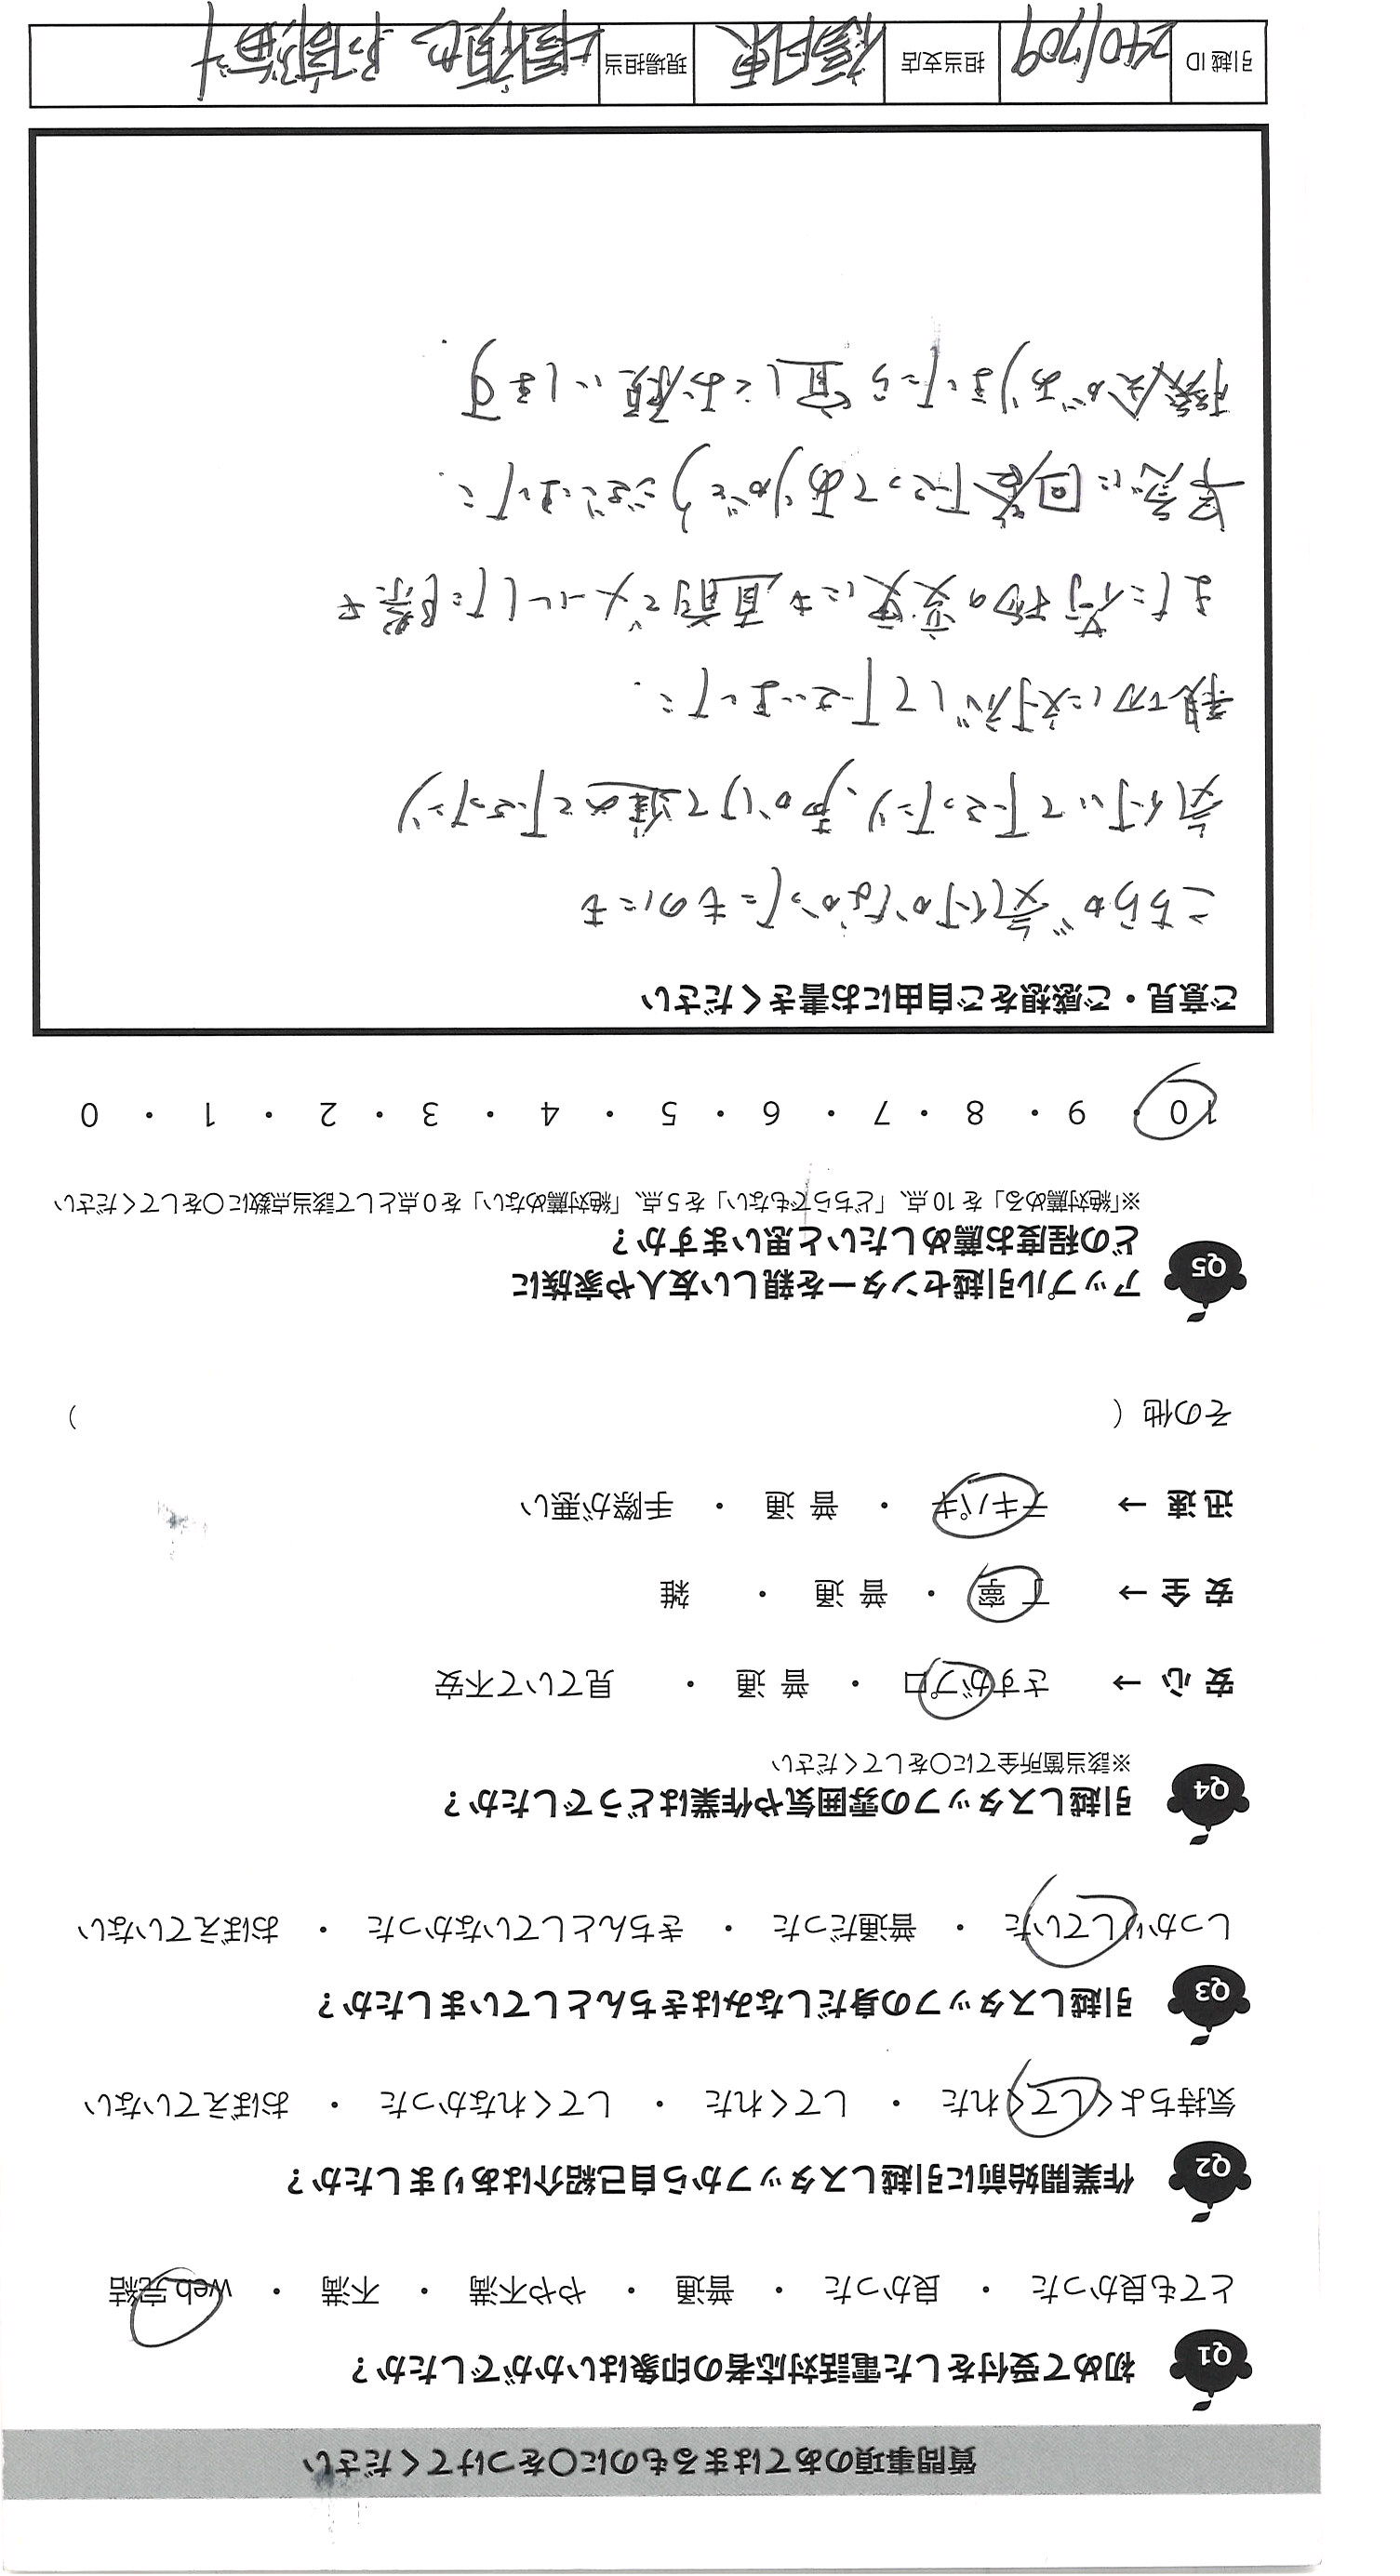 質問事項のあてはまるものに〇をつけてください
Q1 初めて受付をした電話対応者の印象はいかがでしたか？
とても良かった ・ 良かった ・ 普通 ・ やや不満 ・ 不満 ・ web完結
Q2 作業開始前に引越しスタッフから自己紹介はありましたか？
気持ちよくしてくれた ・ してくれた ・ してくれなかった ・ おぼえていない
Q3 引越しスタッフの身だしなみはきちんとしていましたか？
しっかりしていた ・ 普通だった ・ きちんとしていなかった ・ おぼえていない
Q4 引越しスタッフの雰囲気や作業はどうでしたか？
※該当箇所全てに〇をしてください
安心 → さすがプロ ・ 普通 ・ 見ていて不安
安全 → 丁寧 ・ 普通 ・ 雑
迅速 → テキパキ ・ 普通 ・ 手際が悪い
その他（ ）
Q5 アップル引越センターを親しい友人や家族に
どの程度お薦めしたいと思いますか？
※「絶対薦める」を10点、「どちらでもない」を5点、「絶対薦めない」を0点として該当点数に〇をしてください
10 ・ 9 ・ 8 ・ 7 ・ 6 ・ 5 ・ 4 ・ 3 ・ 2 ・ 1 ・ 0
ご意見・ご感想をご自由にお書きください
こちらが気付かなかったものにも
気付いて下さったり、声かけて進めて下さったり
親切に対応して下さいました.
また荷物の変更にも直前でメールした際も
早急に回答下さってありがとうございました.
機会がありましたら宜しくお願いします.
引越ID 2401709 担当支店 福岡東 現場担当